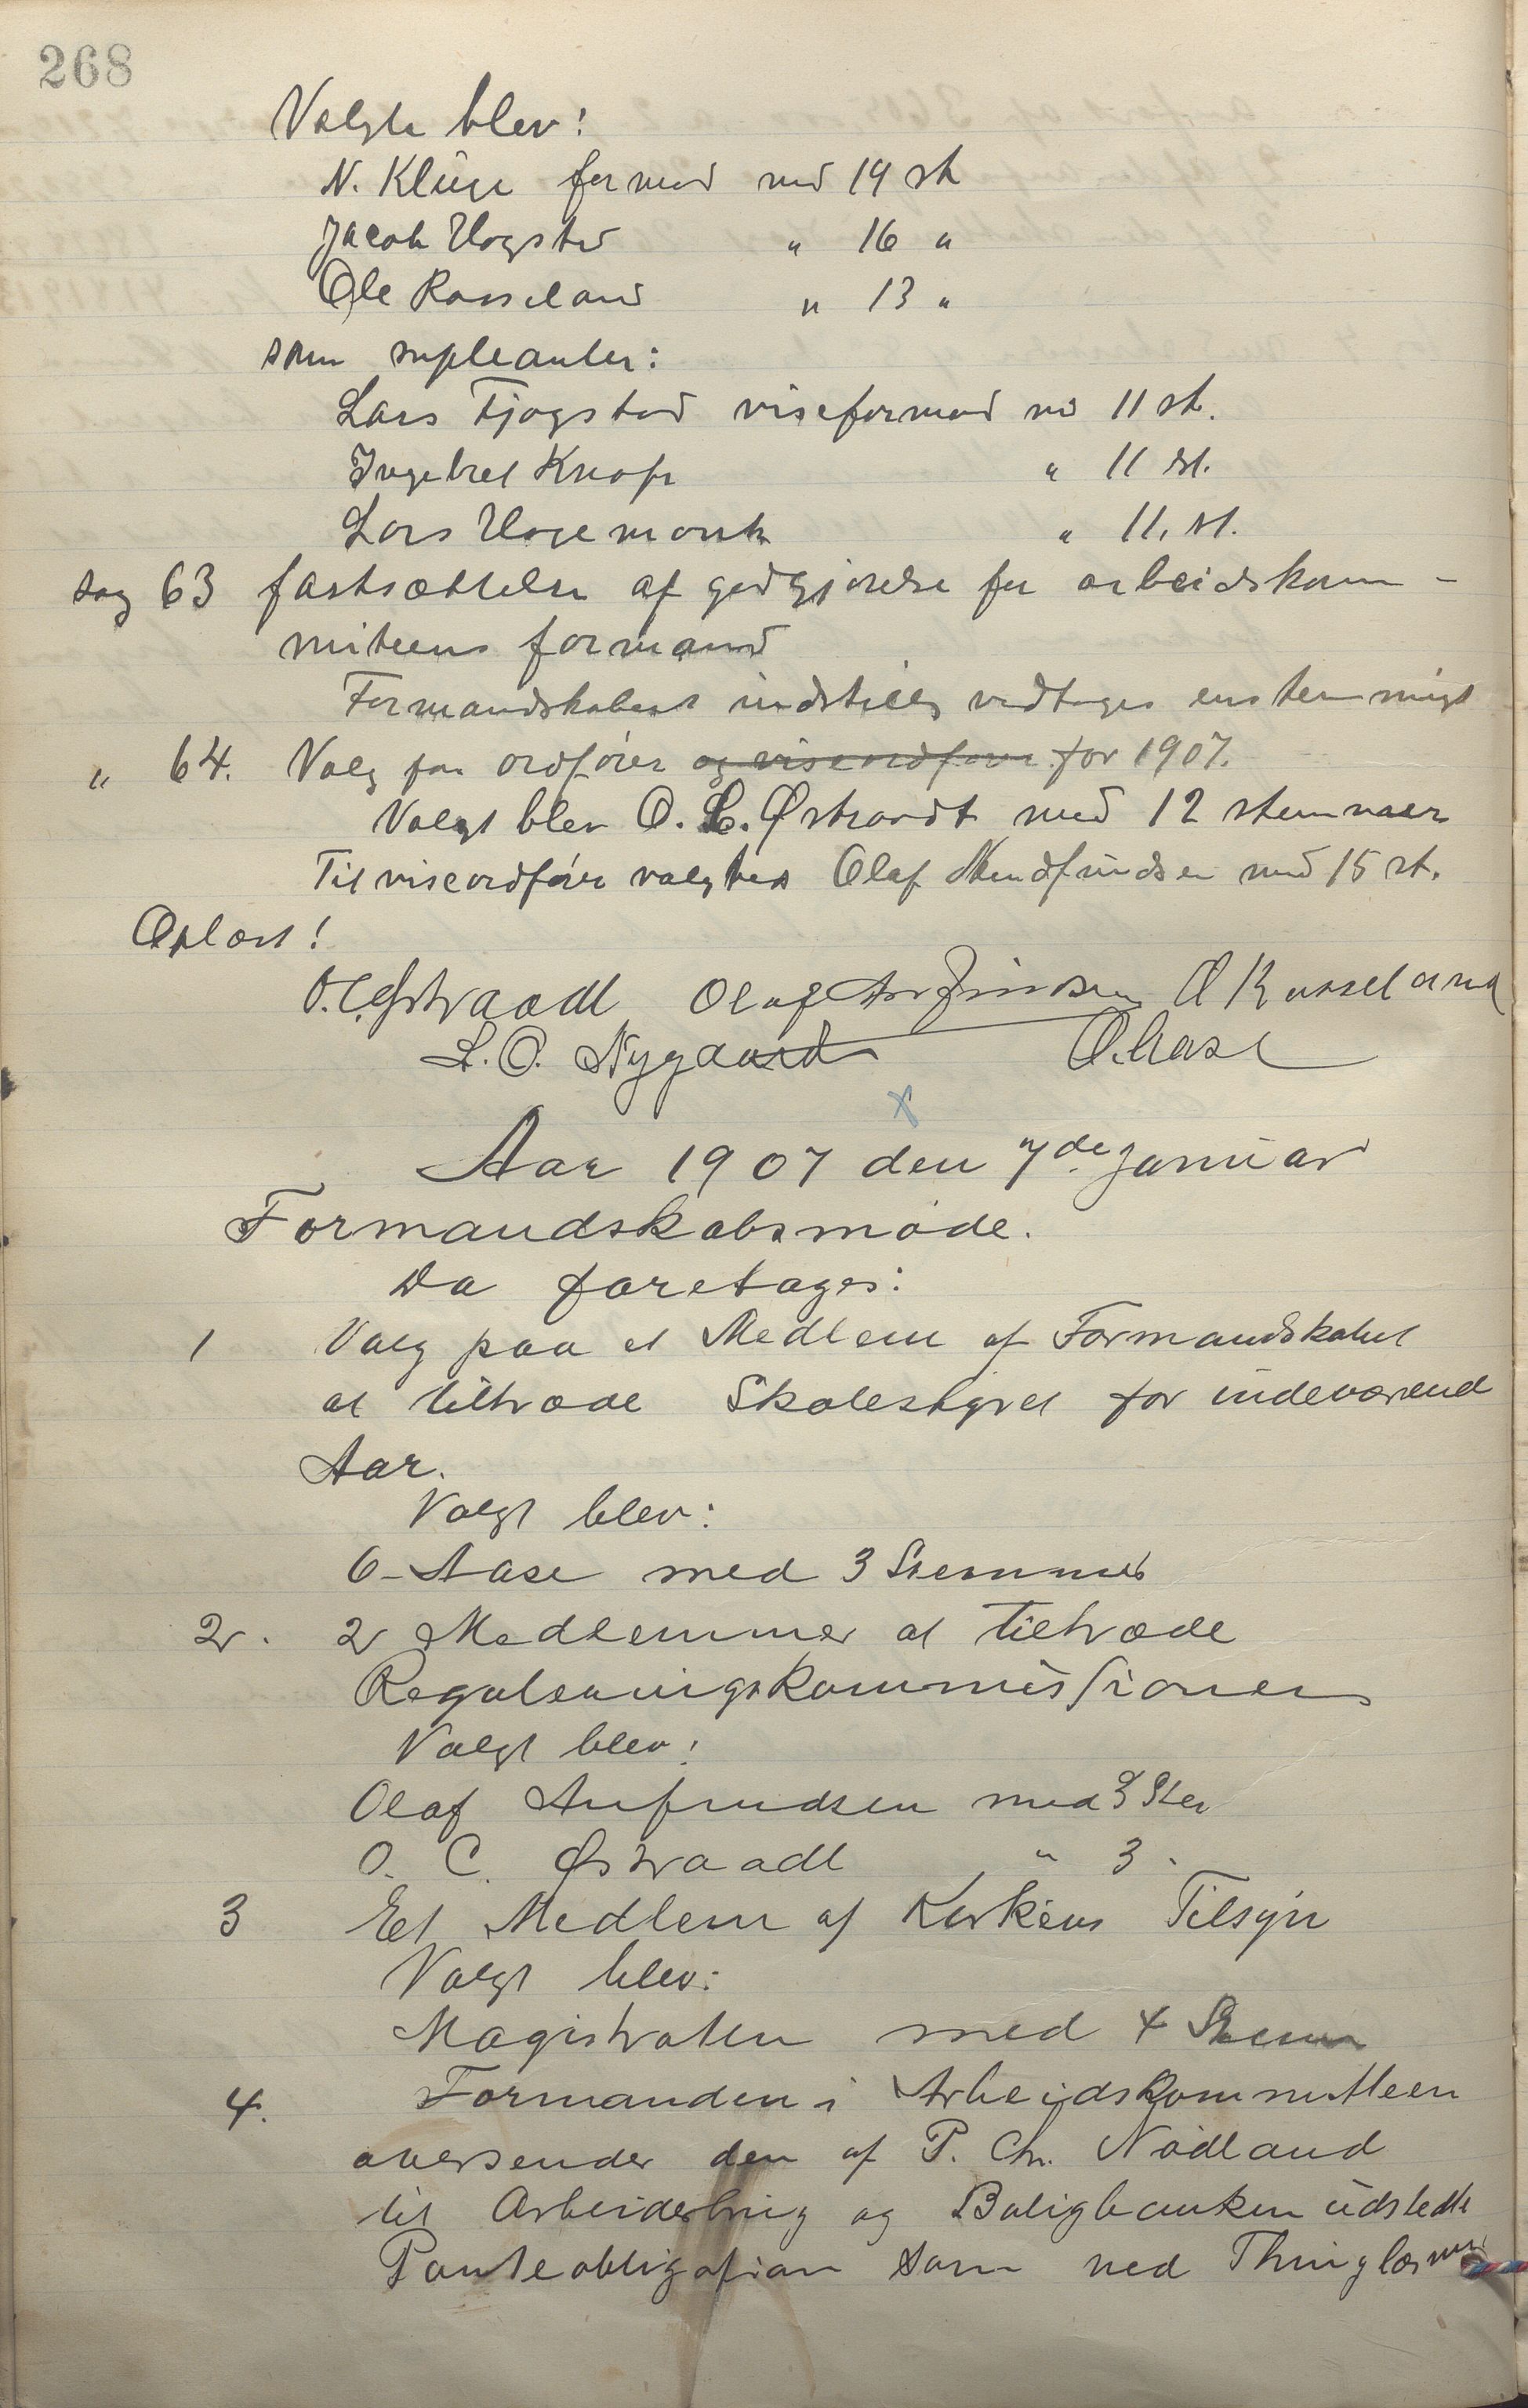 268
Valgte blev:
N. Kluge formod med 19 st
Jacob Hogstad " 16 "
Ole Rosseland " 13 "
som supleanter:
Lars Fjogstad viseformand med 11 st.
Ingebret Knofr " 11 st.
Lars Hogemork " 11. st.
Sag 63 fastsættelse af godtgjørelse for arbeidskom-
miteens formand
Formandskabets indstillg vedtages enstemmigt
" 64. Valg paa ordfører og viseordfører for 1907.
Valgt blev O. C. Østraadt med 12 stemmer
Til viseordfører valgtes Olaf Arndfindsen med 15 st.
Oplæst!
O. C. Østraadt Olaf Arnfindsen O Rosseland
L. O. Nygaard O. Aase
Aar 1907 den 7de Januar
Formandskabsmøde.
Da foretages:
1 Valg paa et Medlem af Formandskabet
at tiltræde Skolestyret for indeværend
Aar.
Valgt blev:
O. Aase med 3 Stemmer
2. 2 Medlemmer at tiltræde
Reguleringskommissionen
Valgt blev:
Olaf Anfindsen med 3 Stem
O. C. Østraadt " 3 -
3 Et Medlem af Kirkens Tilsyn
Valgt blev:
Magistraten med 4 Stem
4. Formanden i Arbeidskommitteen
oversender den af P. Chr. Nødland
til Arbeiderbrug og Boligbanken udstedte
Panteobligation som ved Thinglæsning